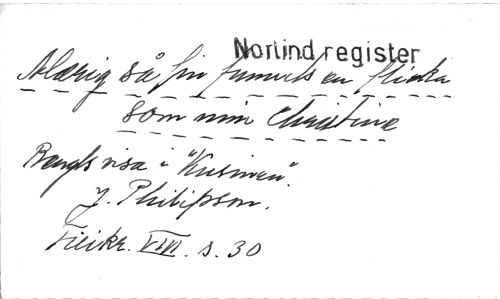 Norlind register
Aldrig så fin funnits en flicka
som min Christine
Bengts visa i "Kusinen".
J. Philipson.
s. 30